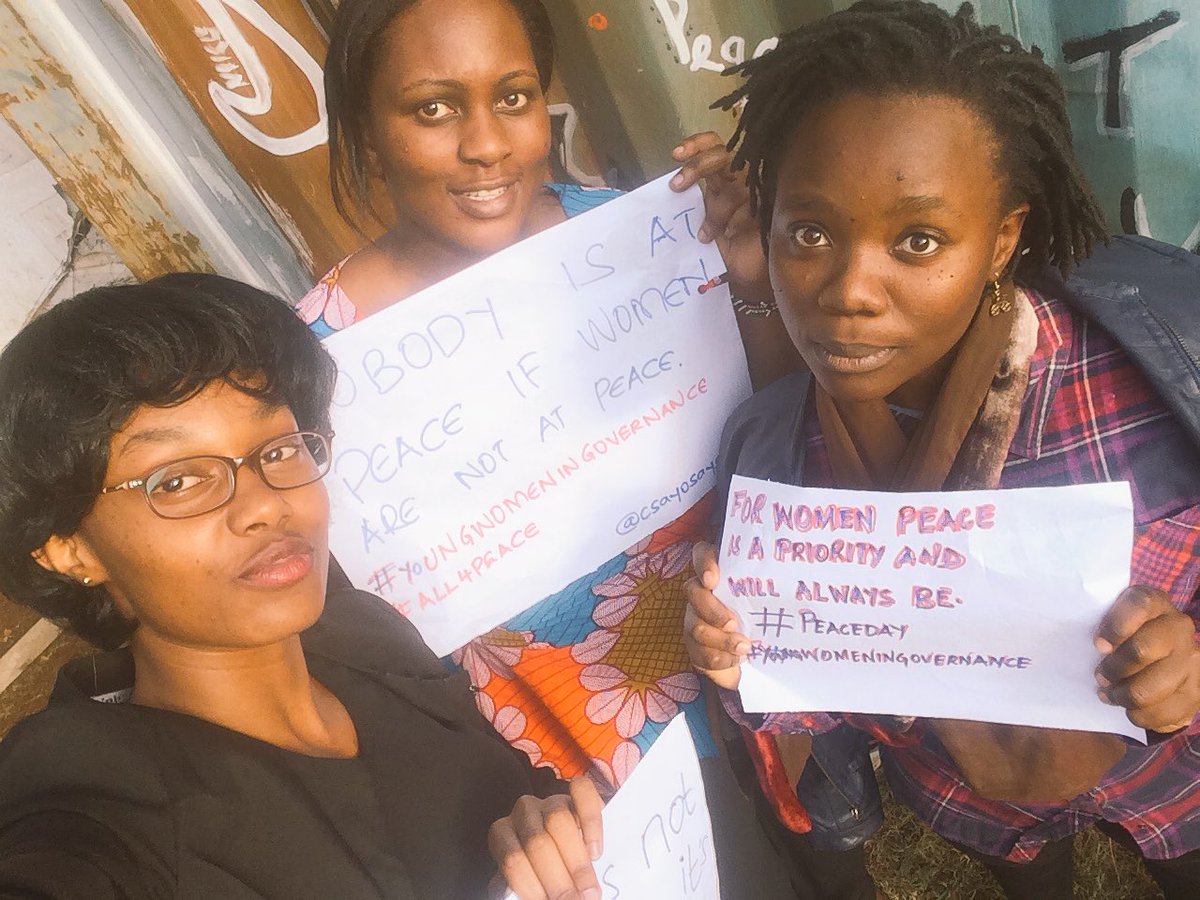 Peac
OBODY IS AT
PEACE IF WOMEN
ARE NOT AT PEACE.
#YOUNGWOMENINGOVERNANCE
#ALL4PEACE
@csayosay
FOR WOMEN PEACE
IS A PRIORITY AND
WILL ALWAYS BE.
#PEACEDAY
#YOUNGWOMENINGOVERNANCE
s not
its